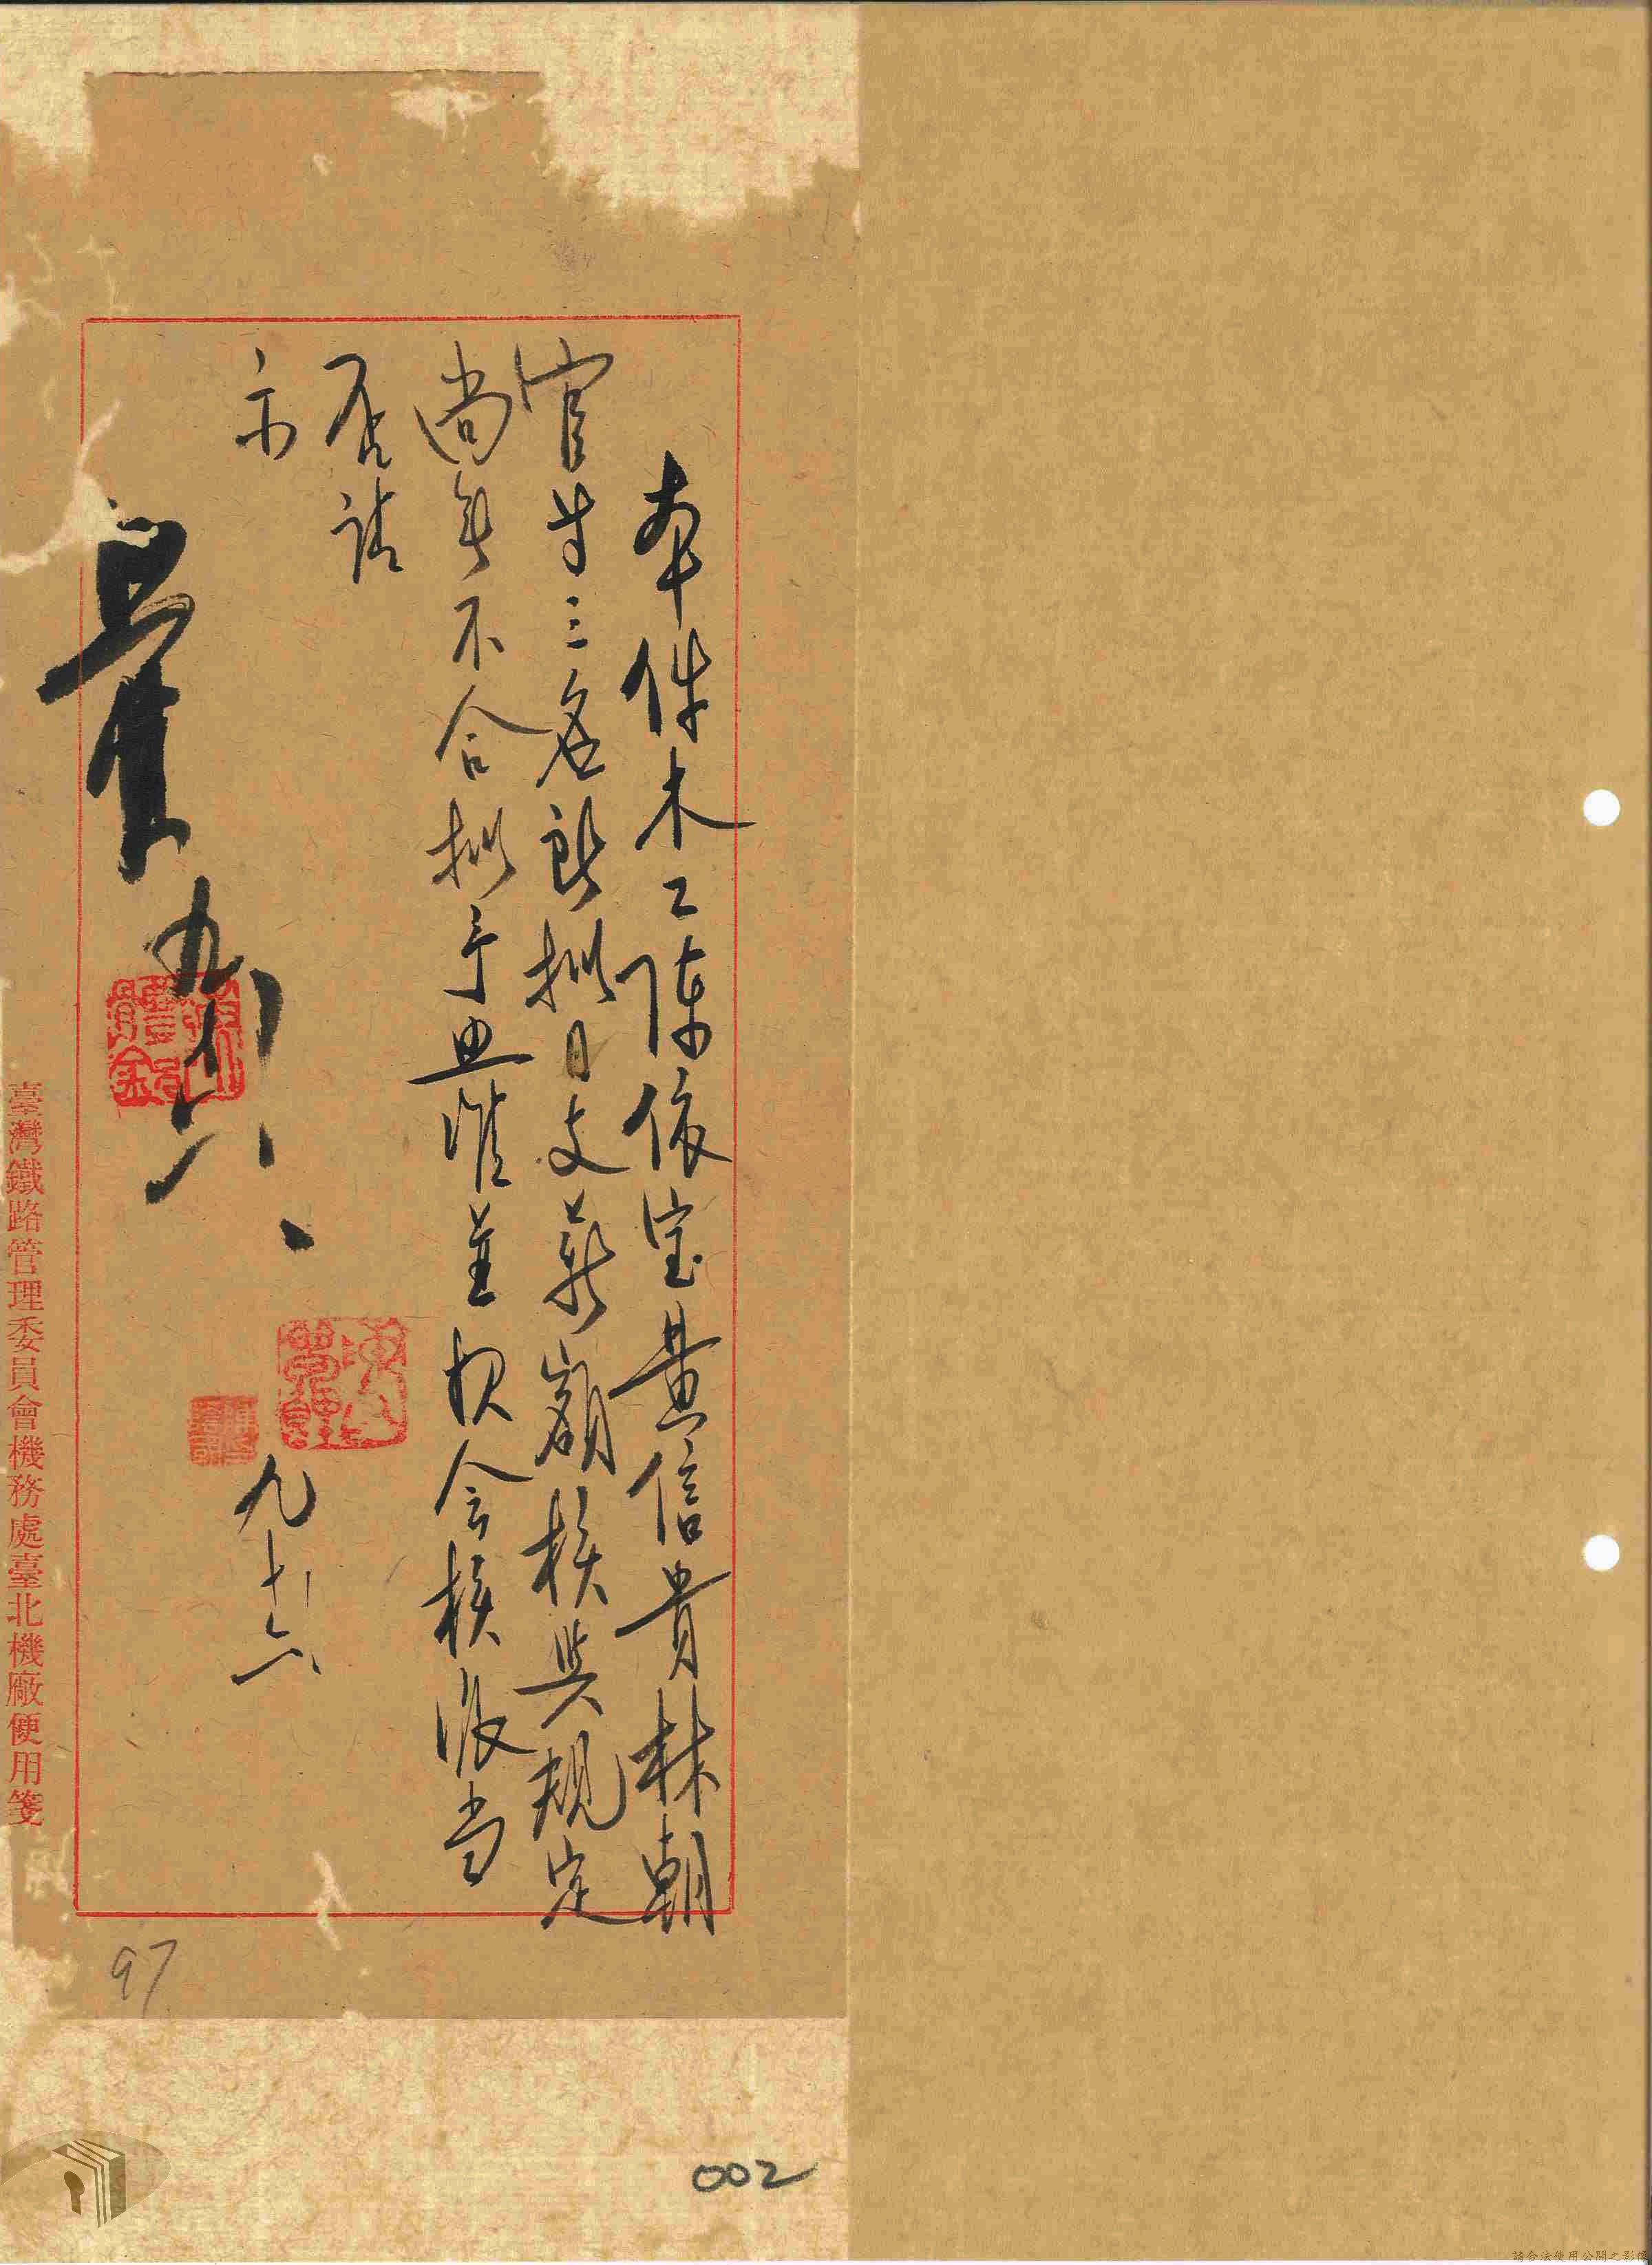 本件木工陳依宝黃信貴林朝
官等三名郎拟日支薪額核與規定
尚無不合拟予照准並擬令核派当
否請
示
九十六
九
臺灣鐵路管理委員會機務處臺北機廠便用箋
97
002
請合法使用公開之影像